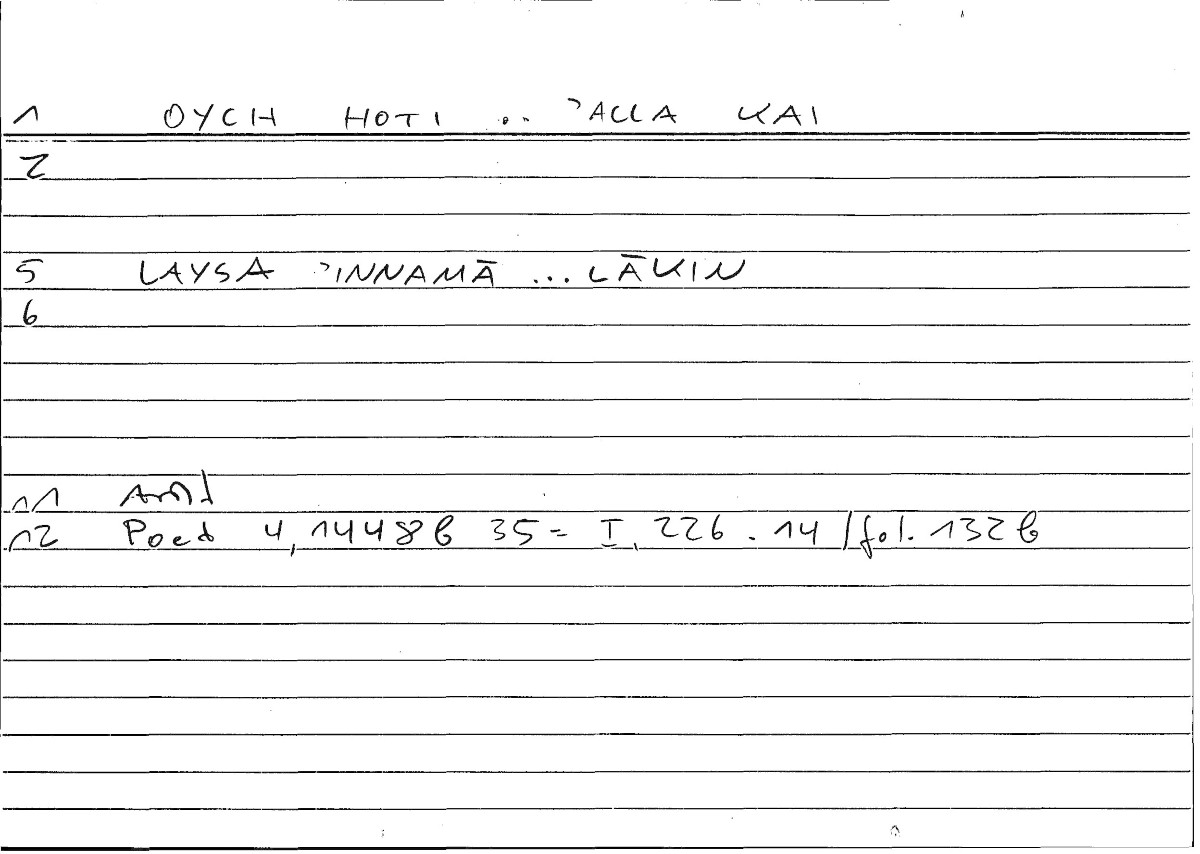 1 OYCH HOTI ... ʾALLA KAI
2
5 LAYSA ʾINNAMĀ ... LĀKIN
6
11
12 Poet 4, 1448b 35 = I, 226.14 / fol. 132b